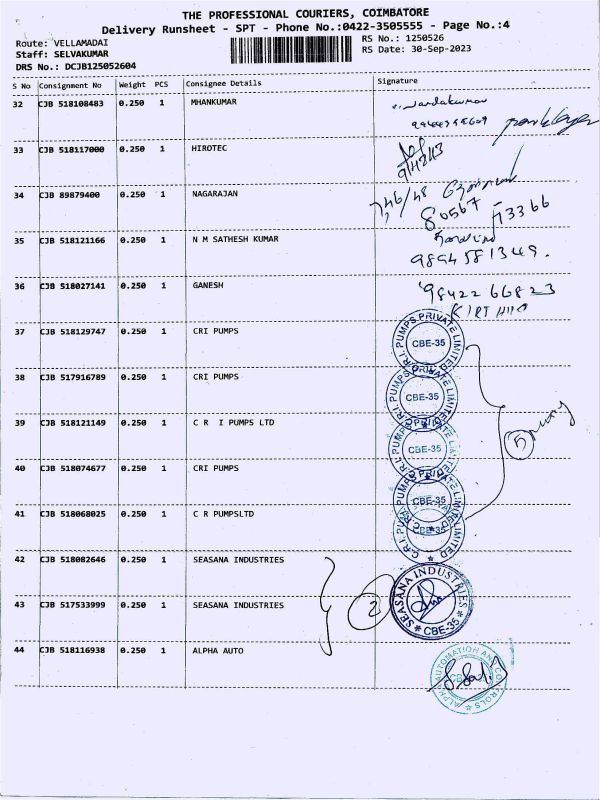 THE PROFESSIONAL COURIERS, COIMBATORE
Delivery Runsheet - SPT - Phone No.:0422-3505555 - Page No.:4
Route: VELLAMADAI
RS No.: 1250526
Staff: SELVAKUMAR
RS Date: 30-Sep-2023
DRS No.: DCJB125052604
S No Consignment No Weight PCS Consignee Details Signature
32 CJB 518108483 0.250 1 MHANKUMAR
33 CJB 518117000 0.250 1 HIROTEC
34 CJB 89879400 0.250 1 NAGARAJAN
80567 73366
35 CJB 518121166 0.250 1 N M SATHESH KUMAR
9894581349.
36 CJB 518027141 0.250 1 GANESH
98422 66823
37 CJB 518129747 0.250 1 CRI PUMPS
C.R.I. PUMPS PRIVATE LIMITED
CBE-35
38 CJB 517916789 0.250 1 CRI PUMPS
CBE-35
39 CJB 518121149 0.250 1 C R I PUMPS LTD
CBE-35
5
40 CJB 518074677 0.250 1 CRI PUMPS
CBE-35
41 CJB 518068025 0.250 1 C R PUMPSLTD
CBE-35
42 CJB 518082646 0.250 1 SEASANA INDUSTRIES
43 CJB 517533999 0.250 1 SEASANA INDUSTRIES
2
SEASANA INDUSTRIES
* CBE-35 *
44 CJB 518116938 0.250 1 ALPHA AUTO
ALPHA AUTOMATION AND CONTROLS